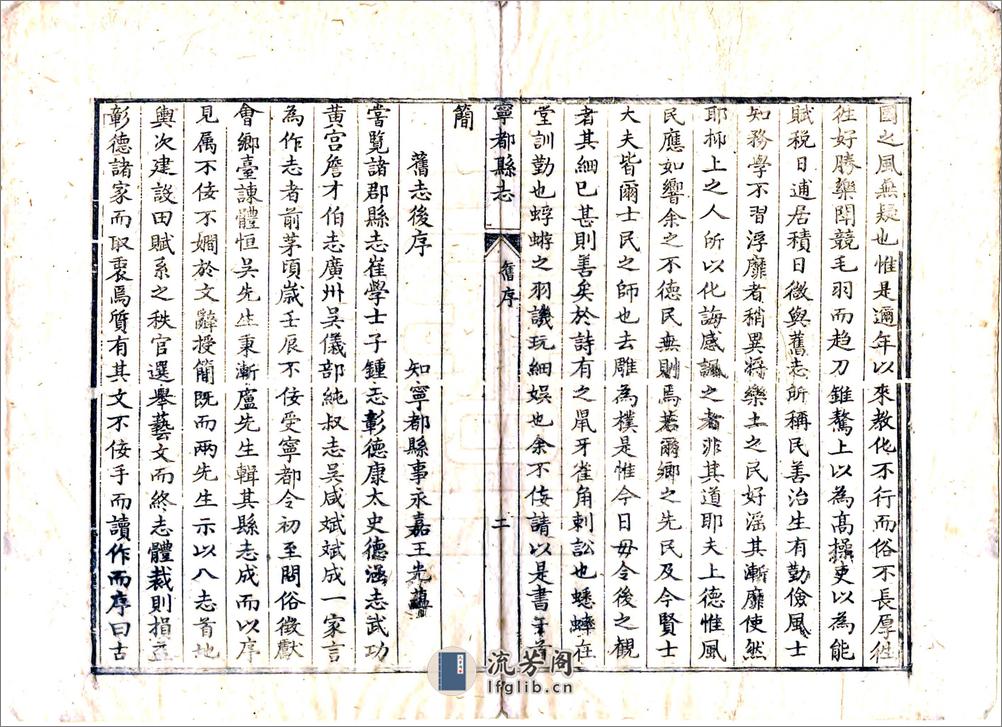 國之風無疑也惟是邇年以來教化不行而俗不長厚性
徃好勝樂鬪競毛羽而趋刀錐驁上以為高操吏以為能
賦稅日逋居積日徵與舊志所稱民善治生有勤儉風士
知務學不習浮靡者稍異將樂土之民好滛其漸靡使然
耶抑上之人所以化誨感諷之者非其道耶夫上德惟風
民應如響余之不德民無則焉若爾鄉之先民及今賢士
大夫皆爾士民之師也去雕為樸是惟今日毋令後之覩
者其細已甚則善矣於詩有之鼠牙雀角刺訟也蟋蟀在
堂訓勤也蜉蝣之羽譏玩細娱也余不佞請以是書于首
寧都縣志
舊序
二
簡
舊志後序
知寧都縣事永嘉王光蘊
嘗覽諸郡縣志崔學士子鍾志彰德康太史德涵志武功
黄宫詹才伯志廣州吳儀部純叔志吳咸斌斌成一家言
為作志者前茅頃歲壬辰不佞受寧都令初至問俗徵獻
會鄉臺諫體恒吳先生東漸盧先生輯其縣志成而以序
見属不佞不嫺於文辭授簡既而兩先生示以八志首地
輿次建設田賦系之秩官選舉藝文而終志體裁則損益
彰德諸家而取裏焉質有其文不佞手而讀作而序曰古
流芳阁
lfglib.cn